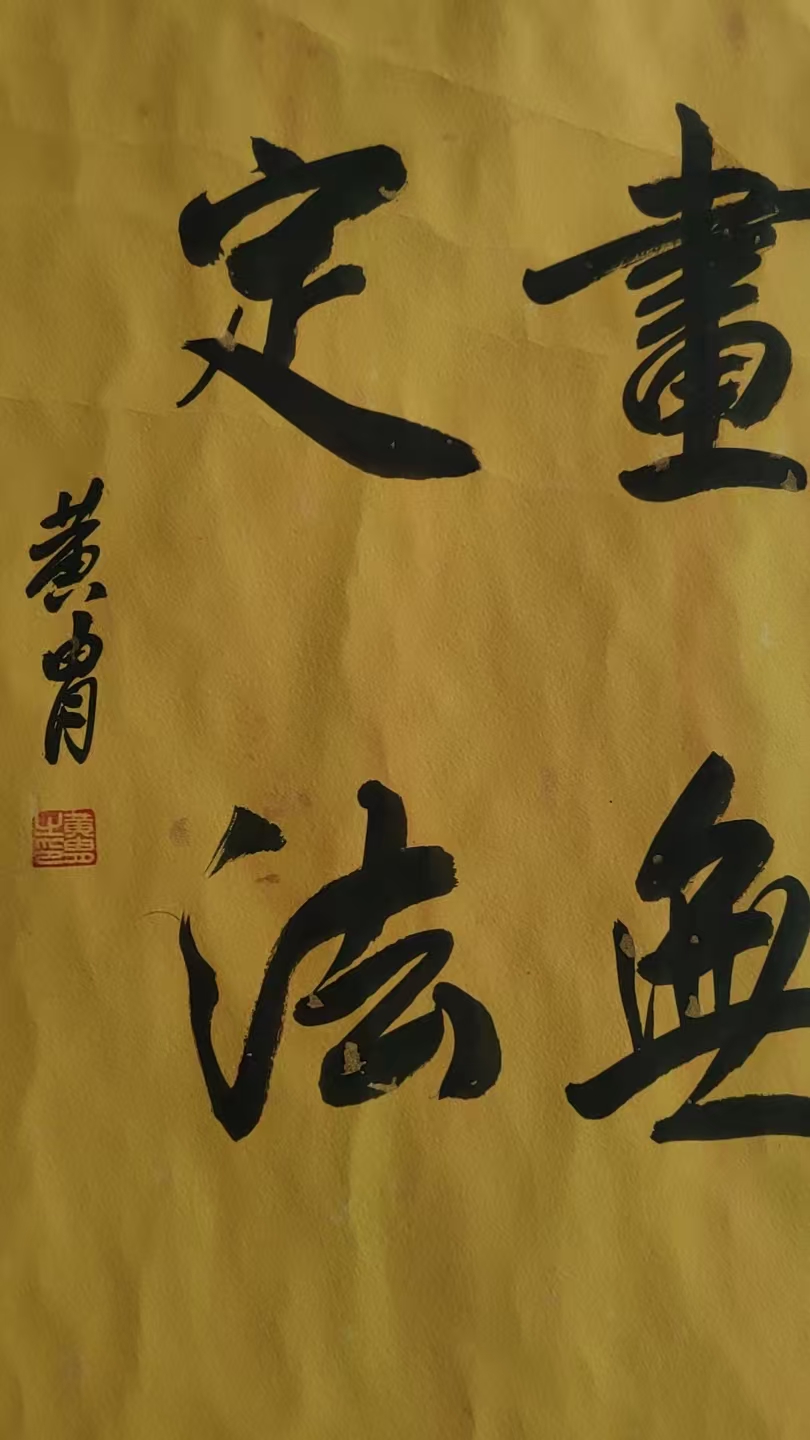 畫無
定法
黄胄
黄胄之印